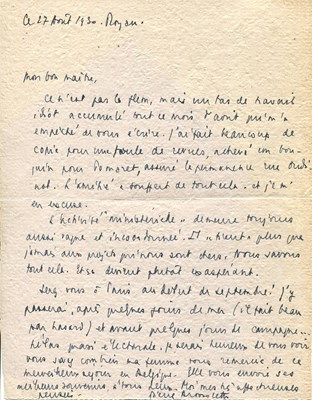 Ce 27 Août 1930. Royan.
Mon bon maître,
Ce n'est pas la flem, mais un tas de travail
idiot accumulé tout ce mois d'août qui m'a
empêché de vous écrire. J'ai fait beaucoup de
copie pour une foule de revues, achevé un bou-
quin pour Pomaret, assuré la permanence rue Oudi-
not. L'amitié a souffert de tout cela - et je m'
en excuse.
L'activité "ministérielle" demeure toujours
aussi vague et incoordonnée. Et "tient" plus que
jamais aux projets qui nous sont chers, nous savons
tout cela. Et ça devient plutôt
Serez-vous à Paris au début de septembre? J'y
passerai, après quelques jours de mer (s'il fait beau
par hasard) et avant quelques jours de campagne...
hélas quasi électorale. Je serais heureux de vous voir.
vous savez combien ma femme vous remercie de ce
merveilleux séjour en Belgique. Elle vous envoie ses
meilleurs souvenirs, à tous deux. Moi mes affectueuses
pensées. Pierre